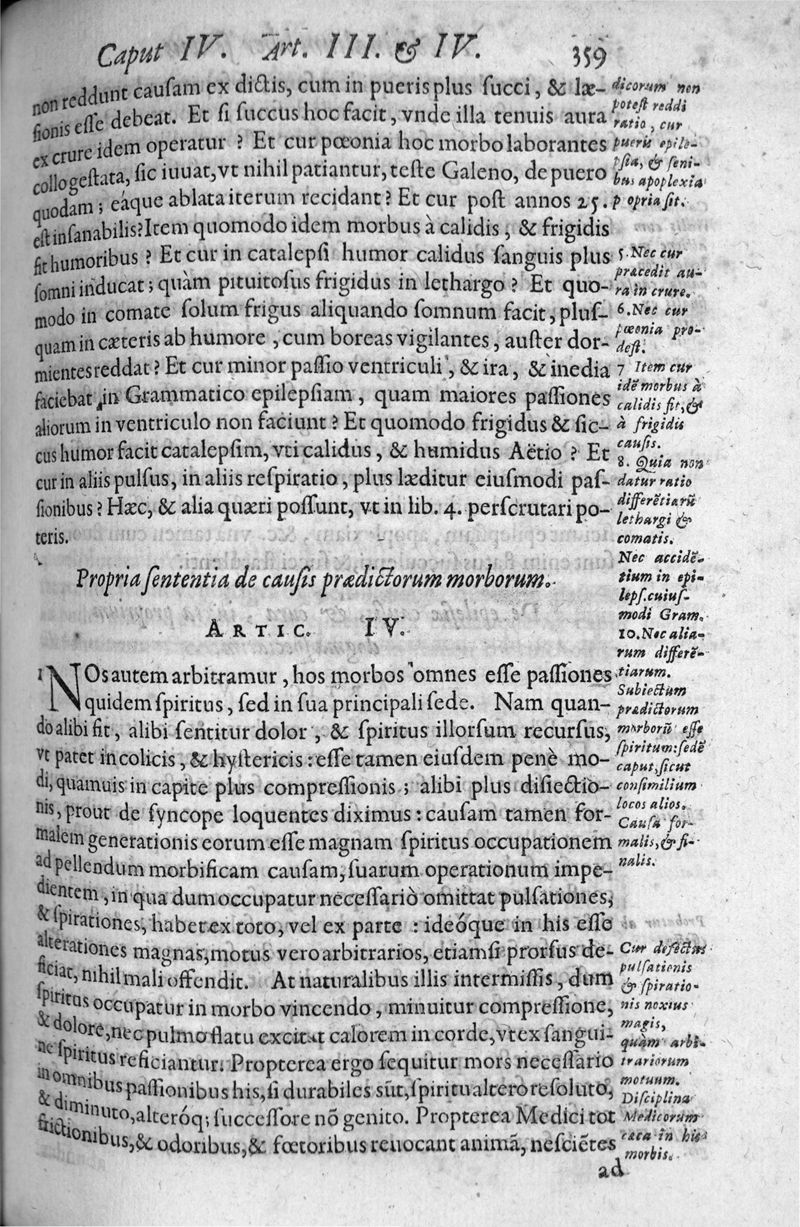 Caput IV. Art. III. & IV. 359
non reddunt causam ex dictis, cum in pueris plus succi, & læ-
sionis esse debeat. Et si succus hoc facit, vnde illa tenuis aura
ex crure idem operatur ? Et cur pœonia hoc morbo laborantes
collo gestata, sic iuuat, vt nihil patiantur, teste Galeno, de puero
quodam ; eáque ablata iterum recidant ? Et cur post annos 25.
est insanabilis? Item quomodo idem morbus à calidis, & frigidis
fit humoribus ? Et cur in catalepsi humor calidus sanguis plus
somni inducat ; quàm pituitosus frigidus in lethargo ? Et quo-
modo in comate solum frigus aliquando somnum facit, plus-
quam in cæteris ab humore , cum boreas vigilantes, auster dor-
mientes reddat ? Et cur minor passio ventriculi , & ira, & inedia
faciebat in Grammatico epilepsiam, quam maiores passiones
aliorum in ventriculo non faciunt ? Et quomodo frigidus & sic-
cus humor facit catalepsim, vti calidus, & humidus Aëtio ? Et
cur in aliis pulsus, in aliis respiratio, plus læditur eiusmodi pas-
sionibus ? Hæc, & alia quæri possunt, vt in lib. 4. perscrutari po-
teris.
dicorum non
potest reddi
ratio, cur
pueris epile-
psia, & seni-
bus apoplexia
p opria sit.
5. Nec cur
præcedit au-
ra in crure.
6. Nec cur
pœonia pro-
dest.
7 Item cur
idẽ morbus à
calidis fit, &
à frigidis
causis.
8. Quia non
datur ratio
differẽtiarũ
lethargi &
comatis.
Nec accidẽ-
tium in epi-
leps. cuius-
modi Gram.
10. Nec alia-
rum differẽ-
tiarum.
Propria sententia de causis prædictorum morborum.
ARTIC. IV.
1 NOs autem arbitramur, hos morbos omnes esse passiones
quidem spiritus, sed in sua principali sede. Nam quan-
do alibi fit, alibi sentitur dolor , & spiritus illorsum recursus,
vt patet in colicis, & hystericis : esse tamen eiusdem penè mo-
di, quamuis in capite plus compressionis ; alibi plus disiectio-
nis, prout de syncope loquentes diximus : causam tamen for-
malem generationis eorum esse magnam spiritus occupationem
ad pellendum morbificam causam, suarum operationum impe-
dientem, in qua dum occupatur necessariò omittat pulsationes,
& spirationes, haberex toto, vel ex parte : ideóque in his esse
alterationes magnas, motus vero arbitrarios, etiamsi prorsus de-
ficiat, nihil mali offendit. At naturalibus illis intermissis, dum
spiritus occupatur in morbo vincendo, minuitur compressione,
& dolore, nec pulmo flatu excitat calorem in corde, vt ex sangui-
ne spiritus reficiantur. Propterea ergo sequitur mors necessario
in omnibus passionibus his, si durabiles sũt, spiritu altero resoluto,
& diminuto, alteróq; successore nõ genito. Propterea Medici tot
frictionibus, & odoribus, & fœtoribus reuocant animã, nesciẽtes
Subiectum
prædictorum
morborũ esse
spiritum: sedẽ
caput, sicut
consimilium
locos alios.
Causa for-
malis, & fi-
nalis.
Cur defectus
pulsationis
& spiratio-
nis noxius
magis,
quàm arbi-
trariorum
motuum.
Disciplina
Medicorum
cæca in his
morbis.
ad